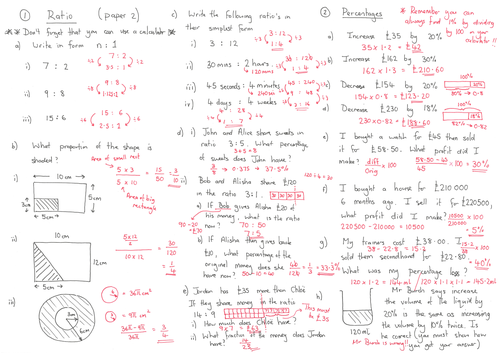 ① Ratio (paper 2)
** Don't forget that you can use a calculator **
a) Write in form n : 1
i) 7 : 2
7 : 2
3.5 : 1
ii) 9 : 8
9 : 8
1.125 : 1
iii) 15 : 6
15 : 6
2.5 : 1
b) What proportion of the shape is shaded?
Area of small rect
i)
10 cm
5cm
3cm
5cm
5 x 3
5 x 10
= 15
50
= 3
10
Area of big rectangle
ii)
10 cm
12cm
5cm
5x12
2
10 x 12
= 30
120
= 1
4
iii)
6cm
= 36π cm²
= 9π cm²
36π - 9π
36π
= 3
4
c) Write the following ratio's in their simplest form
i) 3 : 12
3 : 12
1 : 4
ii) 30 mins : 2 hours
120mins
30 : 120
1 : 4
iii) 45 seconds : 4 minutes
240secs
45 : 240
3 : 16
iv) 4 days : 4 weeks
1 : 7
d) i) John and Alice share sweets in ratio 3:5. What percentage of sweets does John have?
3+5=8
3/8 → 0.375 → 37.5%
ii) Bob and Alisha share £120 in the ratio 3:1.
a) If Bob gives Alisha £20 of his money, what is the ratio now?
90-20
=70
70 : 50
7 : 5
b) If Alisha then gives back £10, what percentage of the original money does she have now?
50-10 = 40
40
120
= 1
3
= 33.3%
e) Jordan has £35 more than Chloe
If they share money in the ratio 16 : 9
This must be £35
i) How much does Chloe have?
9x5 = £45
ii) What fraction of the money does Jordan have?
② Percentages
* Remember you can always find 1% by dividing by 100 in your calculator!!
a) Increase £35 by 20%
35 x 1.2 = £42
b) Increase £162 by 30%
162 x 1.3 = £210.60
c) Decrease £154 by 20%
154 x 0.8 = £123.20
100%
80% → 0.8
d) Decrease £230 by 18%
230 x 0.82 = £188.60
100%
82% → 0.82
e) I bought a watch for £45 then sold it for £58.50. What profit did I make?
diff
Orig
x100
58.50 - 45
45
x 100 = 30%
f) I bought a house for £210 000 6 months ago. I sell it for £220500, what profit did I make?
220500 - 210000 = 10500
10500
210000
x100
= 5%
g) My trainers cost £38.00. I sold them secondhand for £22.80. What was my percentage loss?
15.2
38
x 100
= 40%
h)
120ml
Mr Bonds says increasing the volume of the liquid by 20% is the same as increasing the volume by 10% twice. Is he correct (you must show how you get your answer)
120 x 1.2 = 144ml
120 x 1.1 x 1.1 = 145.2ml
Mr Bonds is wrong!